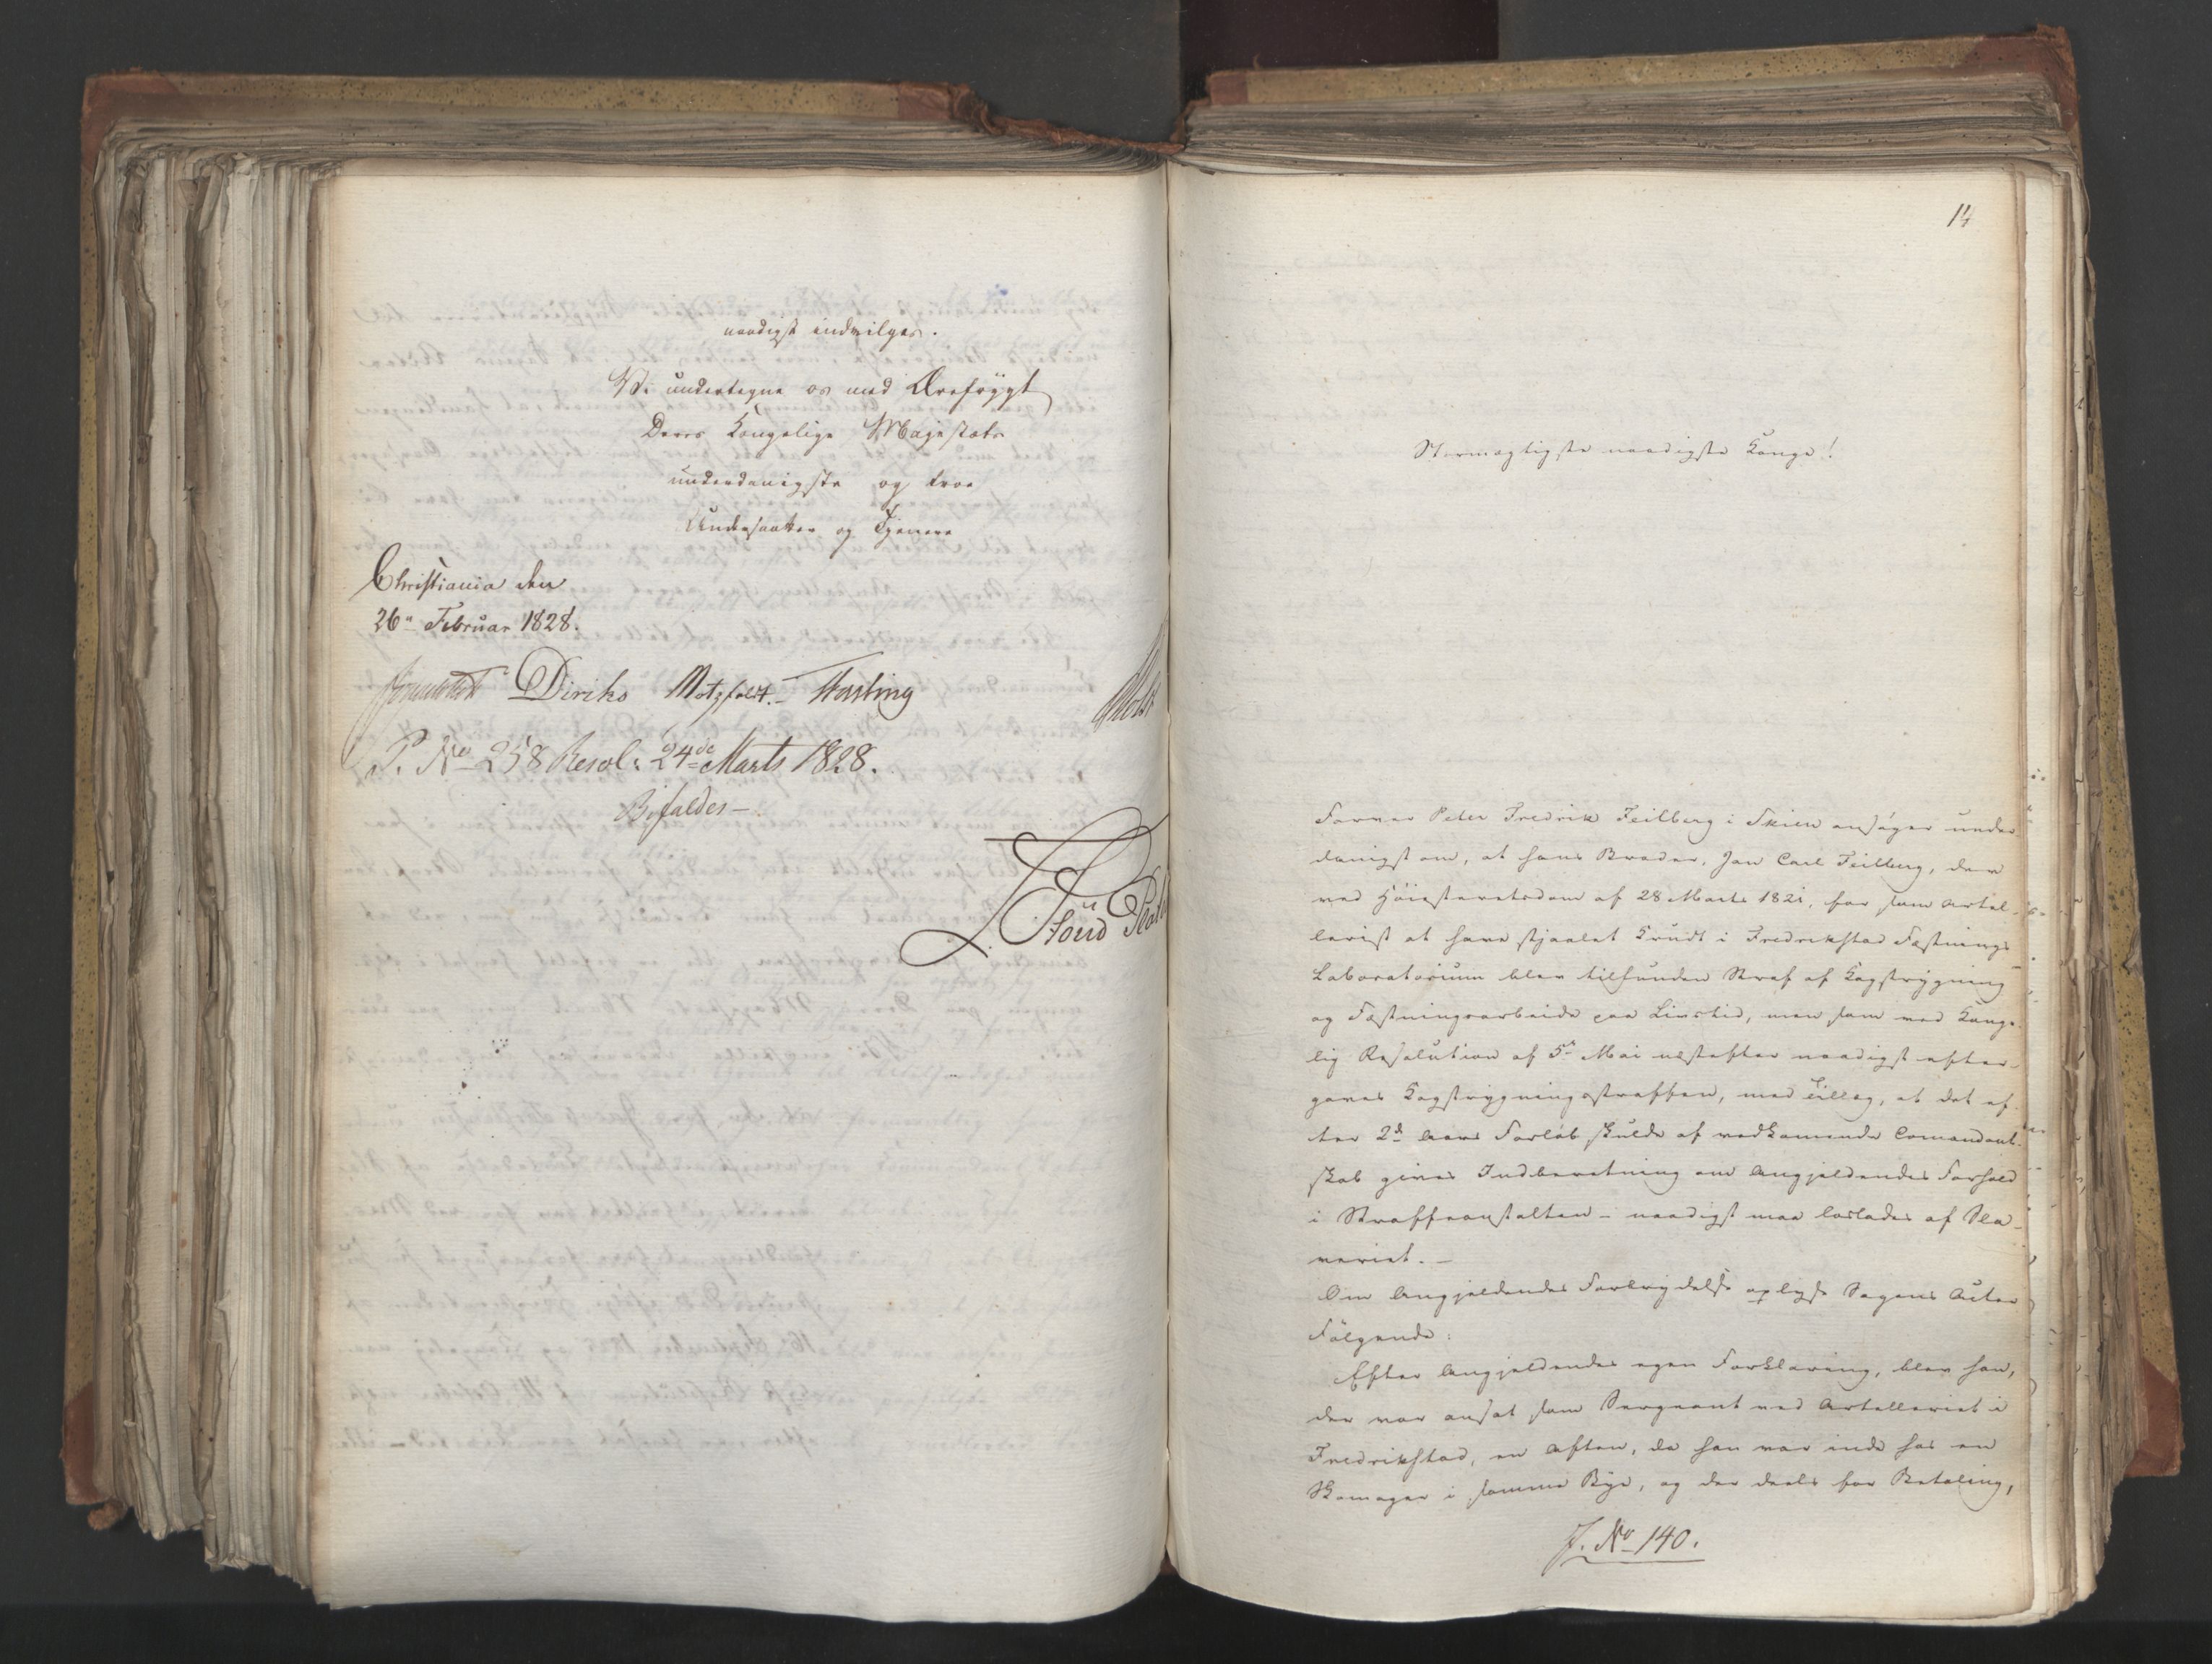 naadigst indvilges.
Vi undertegne os med Ærefrygt
Deres Kongelige Majestæts
underdanigste og troe
Undersaatter og Tjenere
Christiania den
26de Februar 1828.
Diriks Motzfeldt. Fasting Holst
P. No 258 Resol: 24de Marts 1828.
Bifaldes —
14
Stormægtigste naadigste Konge!
Farver Peter Fredrik Feilberg i Skien ansøger under
danigst om, at hans Broder, Jan Carl Feilberg, der
ved Høiesteretsdom af 28 Marts 1821, for som Artel-
lerist at have stjaalet Krudt i Fredrikstad Fæstnings
Laboratorium blev tilfunden Straf af Kagstrygning
og Fæstningsarbeide paa Livstid, men som ved Konge-
lig Resolution af 5te Mai næstefter naadigst efter-
gaves Kagstrygningsstraffen, med Tillæg, at det ef-
ter 2de Aars Forløb skulde af vedkommende Comandant-
skab gives Indberetning om Angjeldendes Forhold
i Straffeanstalten – naadigst maa løslades af Sla-
veriet. —
Om Angjeldendes Forbrydelse oplyse Sagens Acter
Følgende:
Efter Angjeldendes egen Forklaring, blev han,
der var ansat som Sergeant ved Artelleriet i
Fredrikstad, en Aften, da han var inde hos en
Skomager i samme Bye, og der deels for Betaling,
J. No 140.